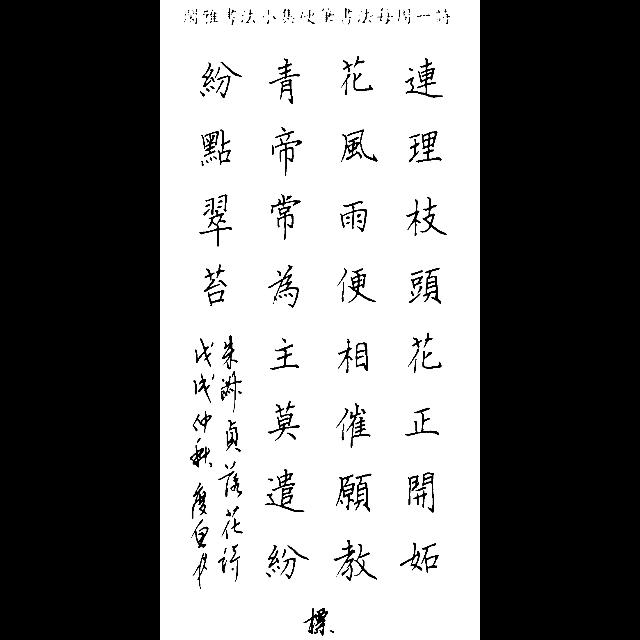 閒雅書法小集硬筆書法每周一詩
連理枝頭花正開妬
花風雨便相催願教
青帝常為主莫遣紛
紛點翠苔
朱淑貞落花詩
戊戌仲秋
標